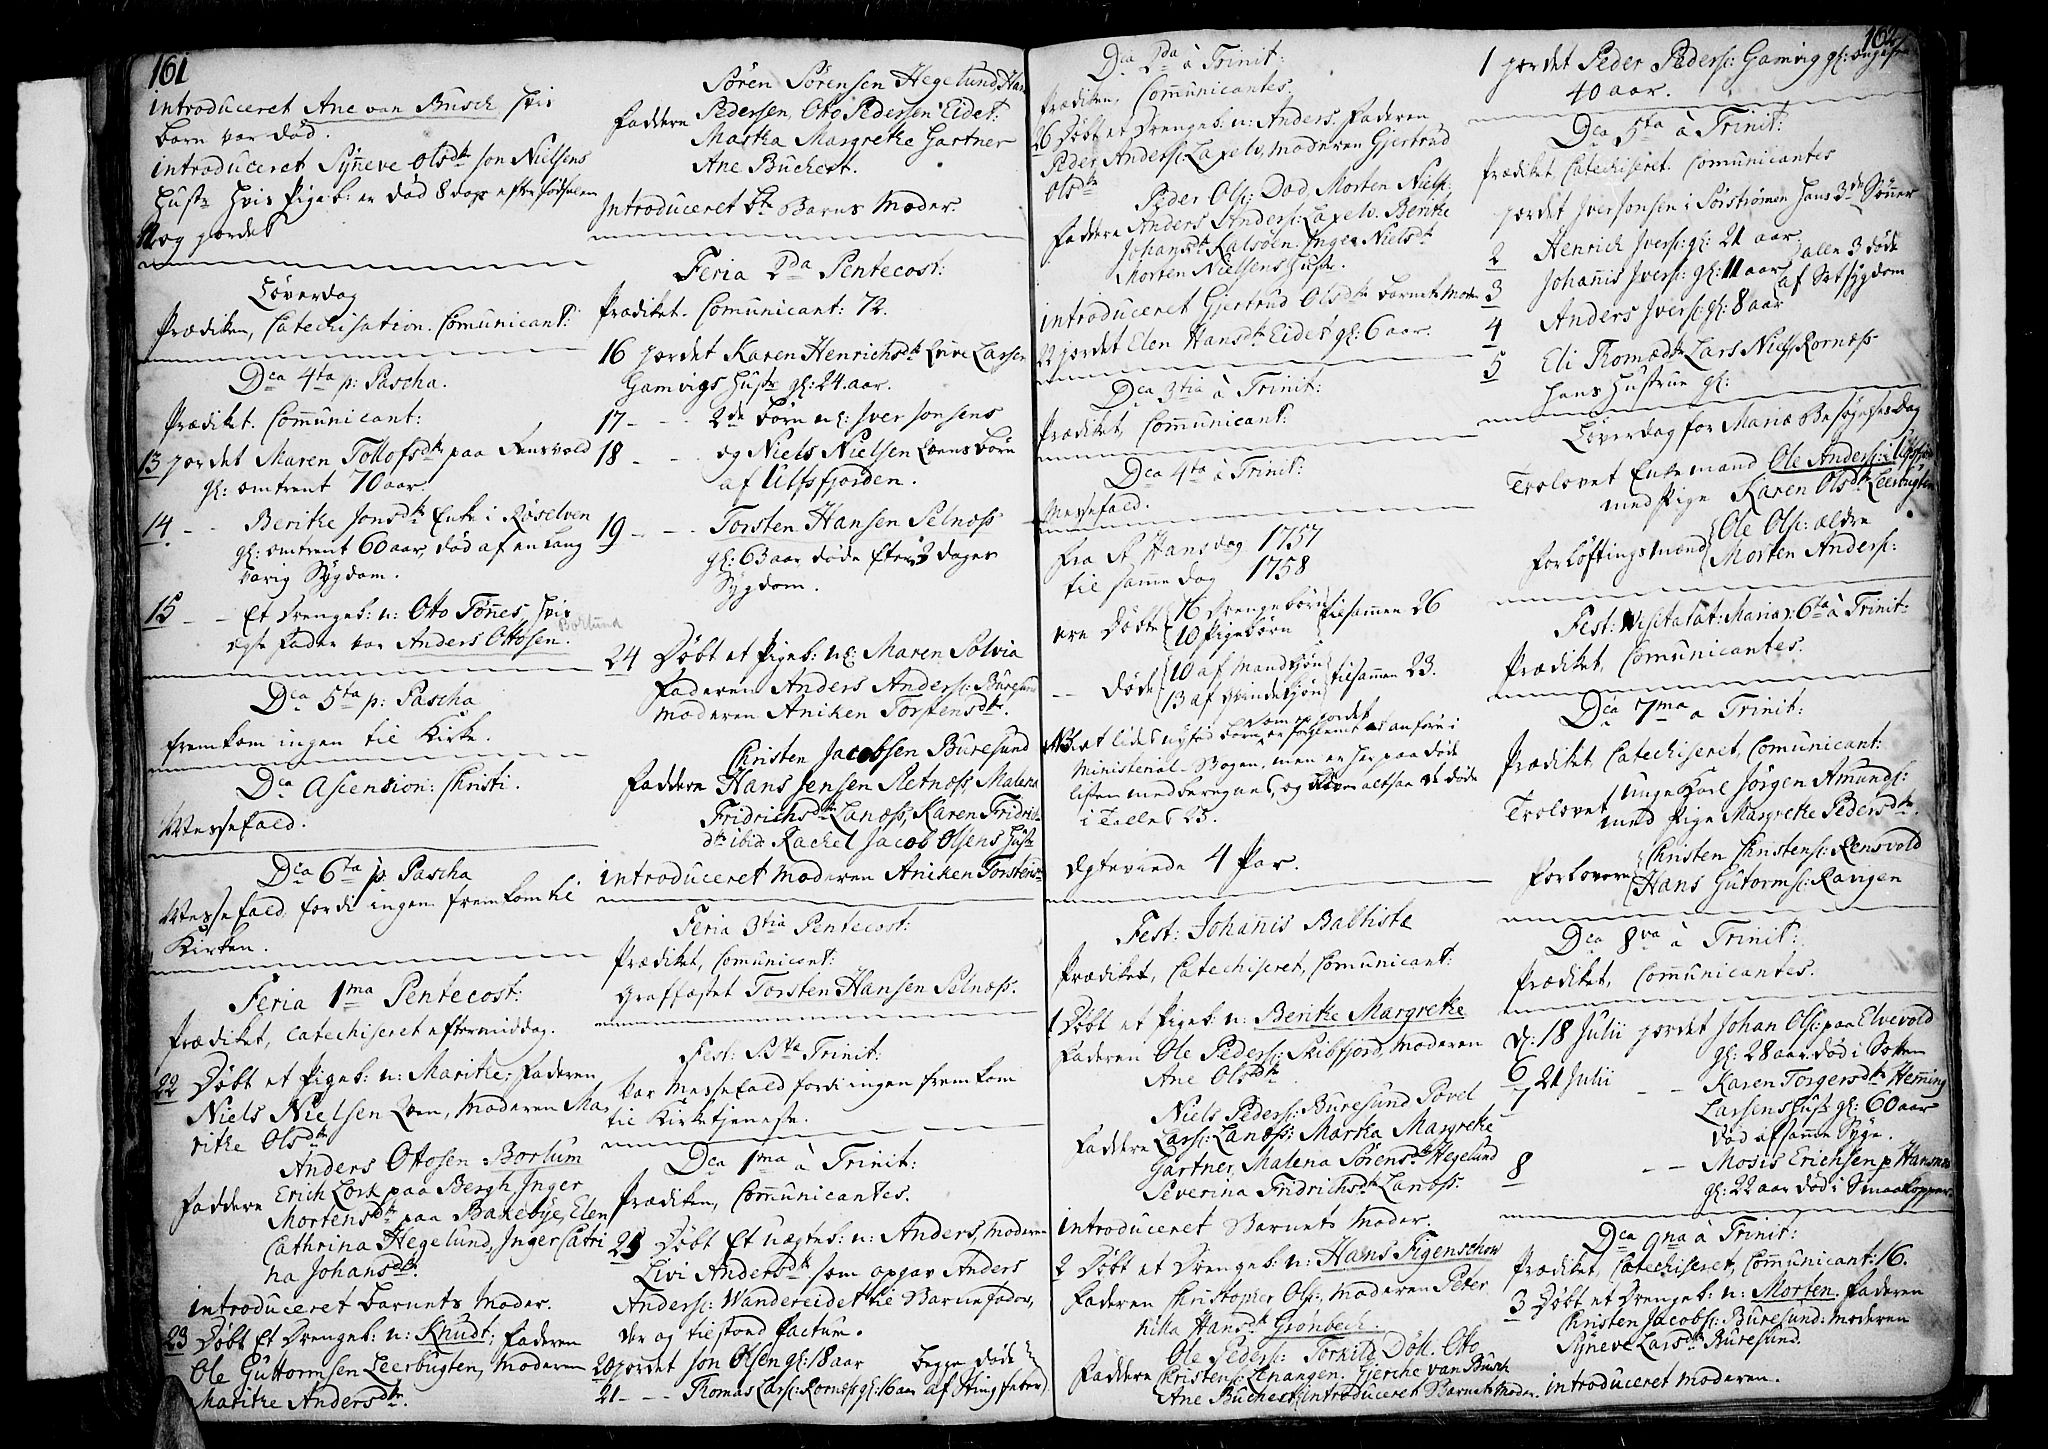 161
introduceret Ane van Busch hvis
barn var død.
introduceret Syn̄eve Olsdtr Jon Nielsens
Hustr hvis Pigeb: er død 8 dage efter fødselen
og jordet
Løverdag
Prædiken, Catechisation. Com̄unicant:
Dca 4ta p: Pascha.
Prædiket. Com̄unicant:
13 jordet Maren Tollofsdtr paa Rensvold
gl: omtrent 70 aar.
14 - - Berithe Jonsdtr Enke i Røselven
gl: omtrent 60 aar, død af en lang
varig Sygdom.
15 - - Et Drengeb: n: Otto Tøn̄es, hvis
Borlund
ægte Fader var Anders Ottosen.
Dca 5ta p: Pascha
fremkom ingen til Kirke.
Dca Ascension: Christi.
Messefald.
Dca 6ta p: Pascha
Messefald, fordi ingen fremkom til
Kirken.
Feria 1ma Pentecost:
Prædiket, catechiseret eftermiddag.
22 Døbt et Pigeb: n: Marithe, Faderen
Niels Nielsen Leen, Moderen Ma-
rithe Olsdtr
Anders Ottosen Borlum
Faddere Erich Lork paa Bergh, Inger
Mortensdtr paa Bakebye, Elen
Cathrina Hegelund, Inger Catri
na Johansdtr.
introduceret barnets Moder.
23 Døbt Et Drengeb: n: Knudt; Faderen
Ole Guttormsen Leerbugten, Moderen
Marithe Andersdtr.
Søren Sørensen Hegelund, Hans
Faddere Pedersen, Otto Pedersen Eidet:
Martha Margrethe Gartner
Ane Buchert.
Introduceret bte Barns Moder.
Feria 2da Pentecost:
Prædiket. Com̄unicant: 72.
16 jordet Karen Henrichsdtr Leive Larsen
Gamvigs Hustr gl: 24 aar.
17 - - - 2de børn nl: Iver Jonsens
18 - - og Niels Nielsen Leens børn
af Ulfsfjorden.
19 - - Torsten Hansen Selnæss
gl: 63 aar døde efter 3 dages
Sygdom.
24 Døbt et Pigeb: nl: Maren Solvia
Faderen Anders Anders: Buresund
Moderen Aniken Torstensdtr.
Christen Jacobsen Buresund
Faddere Hans Jensen Retnæss, Malena
Fridrichsdtr Lanæss, Karen Fridrichs
dtr ibid: Rachel Jacob Olsens Hustr
introduceret Moderen Aniken Torstensdtr
Feria 3tia Pentecost:
Prædiket, Com̄unicant:
Graffæstet Torsten Hansen Selnæss.
Fest: S: Stæ Trinit:
var Messefald fordi ingen fremkom
til Kirketjeneste.
Dca 1ma à Trinit:
Prædiken, Com̄unicantes.
25 Døbt Et uægteb: n: Anders, moderen
Livi Andersdtr som opgav Anders
Anders: Wandereidet til Barnefader,
der og tilstoed factum.
20 jordet Jon Olsen gl: 18 aar begge døde
21 - - Thomas Lars: Kornæss gl: 16 aar af Stingfeber
Dca 2da à Trinit:
Prædiken, Com̄unicantes.
26 Døbt et Drengeb: n: Anders. Faderen
Peder Anders: Laxelv, Moderen Gjertrud
Olsdtr
Peder Ols: Dad, Morten Niels:
Faddere Anders Anders: Laxelv. Berithe
Johansdtr Kalvøen. Inger Nielsdtr
Morten Nielsens Hustr.
introduceret Gjertrud Olsdtr barnets Moder
22 jordet Elen Hansdtr Eidet gl: 6 aar.
Dca 3tia à Trinit:
Prædiket, Com̄unicant:
Dca 4ta à Trinit:
Messefald.
Fra St Hans dag 1757
til sam̄e dag 1758
ere Døbte 16 Drengebørn tilsammen 26
10 Pigebørn
-- Døde 10 af Mandkjøn tilsammen 23.
13 af Qvindekjøn
NB: et lidet ugift barn, som er jordet, er forglemt at anføre i
Ministerial-Bogen, men er her paa Døde
listen medberegnet, og bliver altsaa de døde
i Tallet 23.
Ægteviede 4 Par.
Fest: Johan̄is Babtistæ
Prædiket, Catechiseret, Com̄unicant:
1 Døbt et Pigeb: n: Berithe Margrethe
Faderen Ole Peders: Skibfjord, Moderen
Ane Olsdtr
Niels Peders: Buresund, Povel
Faddere Lars: Lanæss: Martha Margrethe
Gartner, Malena Sørensdtr Hegelund
Severina Fridrichsdtr Lanæss.
introduceret Barnets Moder.
2 Døbt et Drengeb: n: Hans Figenschow
Faderen Christopher Ols: Moderen Peter
nilla Hansdtr Grønbech.
Ole Peders: Torkild Døll. Otto
Faddere Christens: Lenangen. Gjerche van Busch
Ane Buchert. introduceret Barnets Moder.
162
1 jordet Peder Peders: Gamvig gl: ungefær
40 aar.
Dca 5ta à Trinit:
Prædiket, Catechiseret. Com̄unicantes
jordet Iver Jonsen i Sørstrømen Hans 3de Søn̄er
2 Henrich Ivers: gl: 21 aar
3 Johan̄is Ivers: gl: 11 aar alle 3 døde
4 Anders Ivers: gl: 8 aar af Sotsygdom
5 Eli Thomædtr Lars Niels: Kornæss
Hans Hustrue gl:
Løverdag for Mariæ Besøgelses Dag
Trolovet Enkemand Ole Anders: i Ulfsfjord
med Pige Karen Olsdtr Leerbugten
Forløftingsmænd Ole Ols: ældre
Morten Anders:
Fest: Visitatat: Mariæ, 6ta à Trinit:
Prædiket, Com̄unicantes.
Dca 7ma a Trinit:
Prædiket, Catechiseret, Com̄unicant:
Trolovet unge Karl Jørgen Amunds:
med Pige Margrethe Pedersdtr.
Forlovere Christen Christens: Rensvold
Hans Gutorms: Kavigen
Dca 8va à Trinit:
Prædiket, Com̄unicantes.
D: 18 Julii jordet Johan Ols: paa Elvevold
gl: 28 aar død i Sotten
6
7 21 Julii - - Karen Torgersdtr Hem̄ing
Larsens Hustr gl: 60 aar
død af sam̄e Syge.
8 - - Mosis Erichsen p Hansnæs
gl: 22 aar død i Smaakopper
Dca 9na à Trinit:
Prædiket, Catechiseret, Com̄unicant: 16.
3 Døbt et Drengeb: n: Morten. Faderen
Christen Jacobs: Buresund: Moderen
Syneve Larsdtr Buresund.
introduceret Moderen.